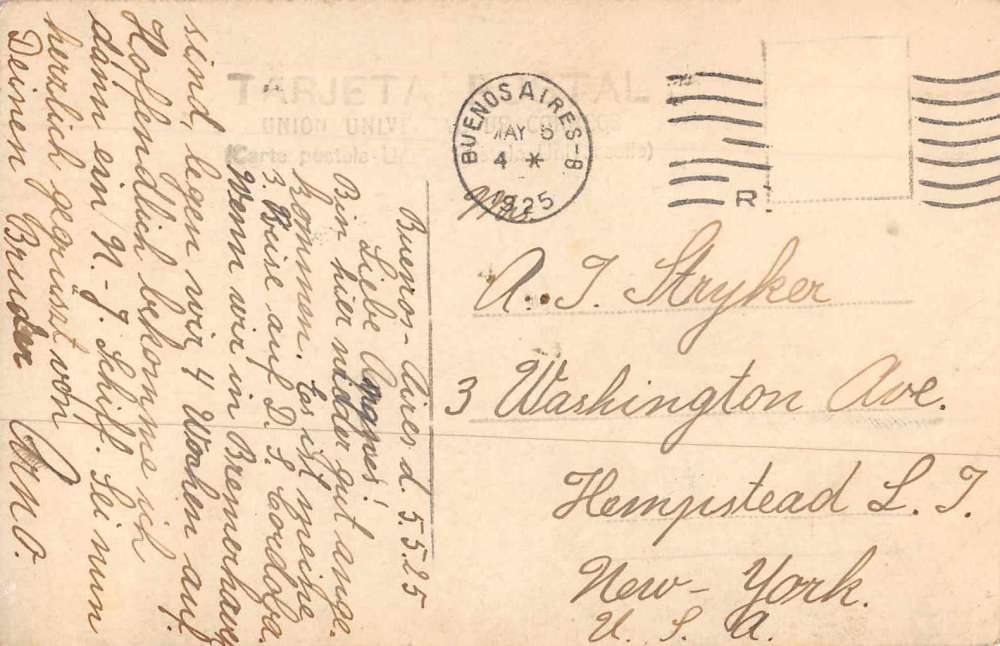 TARJETA POSTAL
UNION UNIVERSAL DE CORREOS
(Carte postale-U
BUENOS AIRES-B.
MAY 5
4 *
1925
R
Buenos-Aires d. 5.5.25
Liebe Agnes!
Bin hier nidder gut ange-
kommen. Es ist meine
3. Reise auf D. S. Cordoba.
Wenn wir in Bremerhaven
sind, legen wir 4 Wochen auf.
Hoffendlich bekomme ich
dann ein N.-J. Schiff. Sei nun
herrlich gegrüsst von
Deinen Bruder
Arno.
A. J. Stryker
3 Washington Ave.
Hempstead L. I.
New-York.
U. S. A.